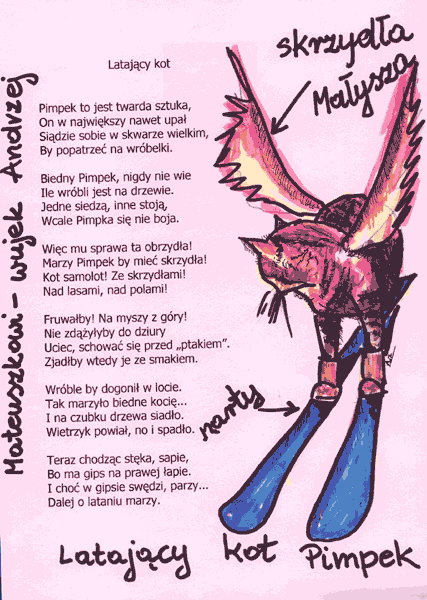 Latający kot
Pimpek to jest twarda sztuka,
On w największy nawet upał
Siądzie sobie w skwarze wielkim,
By popatrzeć na wróbelki.
Biedny Pimpek, nigdy nie wie
Ile wróbli jest na drzewie.
Jedne siedzą, inne stoją,
Wcale Pimpka się nie boja.
Więc mu sprawa ta obrzydła!
Marzy Pimpek by mieć skrzydła!
Kot samolot! Ze skrzydłami!
Nad lasami, nad polami!
Fruwałby! Na myszy z góry!
Nie zdążyłyby do dziury
Uciec, schować się przed „ptakiem”.
Zjadłby wtedy je ze smakiem.
Wróble by dogonił w locie.
Tak marzyło biedne kocię...
I na czubku drzewa siadło.
Wietrzyk powiał, no i spadło.
Teraz chodząc stęka, sapie,
Bo ma gips na prawej łapie.
I choć w gipsie swędzi, parzy...
Dalej o lataniu marzy.
Mateuszkowi - wujek Andrzej
skrzydła
Małysza
narty
Latający kot Pimpek